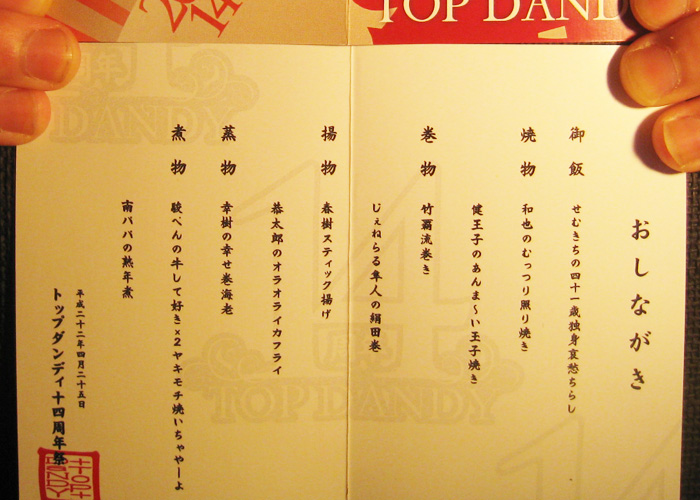 TOP DAND
2014
おしながき
御飯 せむきちの四十一歳独身哀愁ちらし
焼物 和也のむっつり照り焼き
健王子のあんま〜い王子焼き
巻物 竹覇流巻き
じぇねらる隼人の絹田巻
揚物 春樹スティック揚げ
恭太郎のオラオライカフライ
蒸物 幸樹の幸せ巻海老
煮物 駿ぺんの牛して好き×2ヤキモチ焼いちゃやーよ
南パパの熟年煮
平成二十二年四月二十五日
トップダンディ十四周年祭
TOP DANDY
14
周年
TOP DANDY